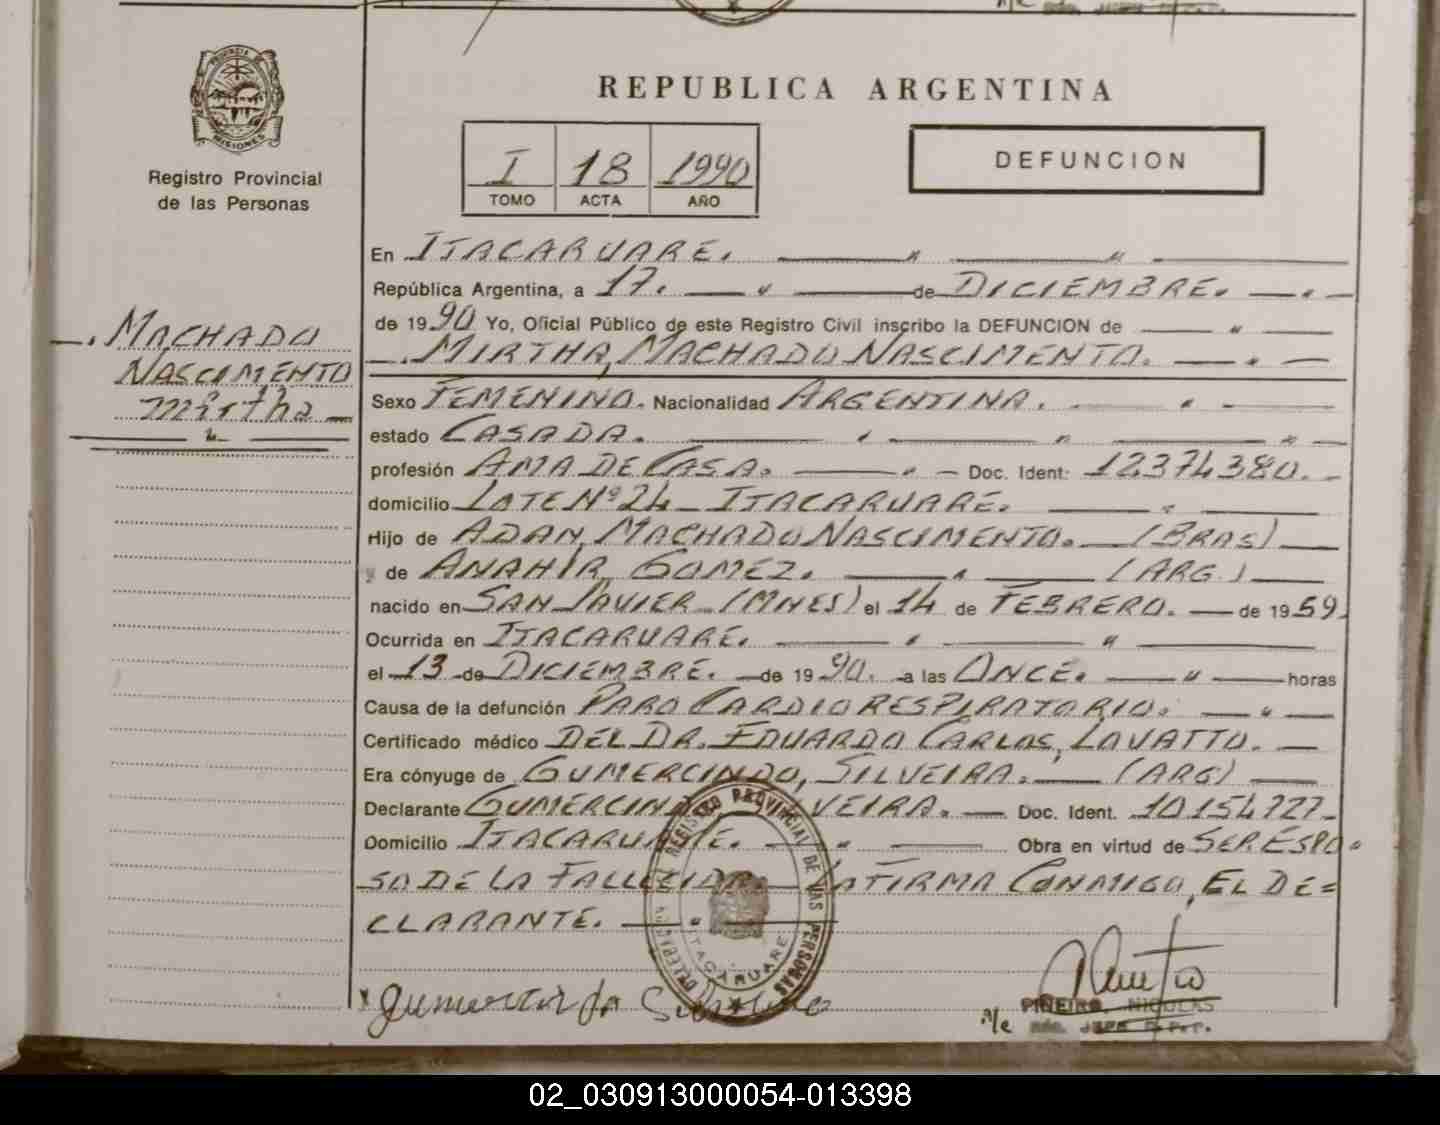 PROVINCIA DE
MISIONES
Registro Provincial
de las Personas
REPUBLICA ARGENTINA
I 18 1990
TOMO ACTA AÑO
DEFUNCION
MACHADO
NASCIMENTO
mirtha
En ITACARUARE.
República Argentina, a 17. de DICIEMBRE.
de 1990 Yo, Oficial Público de este Registro Civil inscribo la DEFUNCION de
MIRTHA, MACHADO NASCIMENTO.
Sexo FEMENINO. Nacionalidad ARGENTINA.
estado CASADA.
profesión AMA DE CASA. Doc. Ident: 12374380.
domicilio LOTE Nº 24 ITACARUARE.
Hijo de ADAN, MACHADO NASCIMENTO. (BRAS)
y de ANAHIR GOMEZ. (ARG.)
nacido en SAN JAVIER (MNES) el 14 de FEBRERO. de 1959.
Ocurrida en ITACARUARE.
el 13 de DICIEMBRE. de 1990. a las ONCE. horas
Causa de la defunción PARO CARDIORESPIRATORIO.
Certificado médico DEL DR. EDUARDO CARLOS, LOVATTO.
Era cónyuge de GUMERCINDO, SILVEIRA. (ARG)
Declarante GUMERCIN VEIRA. Doc. Ident. 10154727
Domicilio ITACARUARE. Obra en virtud de SER ESPO
SO DE LA FALLECIDA. FIRMA CONMIGO, EL DE=
CLARANTE.
REGISTRO PROVINCIAL DE LAS PERSONAS
ITACARUARE
PIÑEIRO, NICOLAS
A/c
02_030913000054-013398